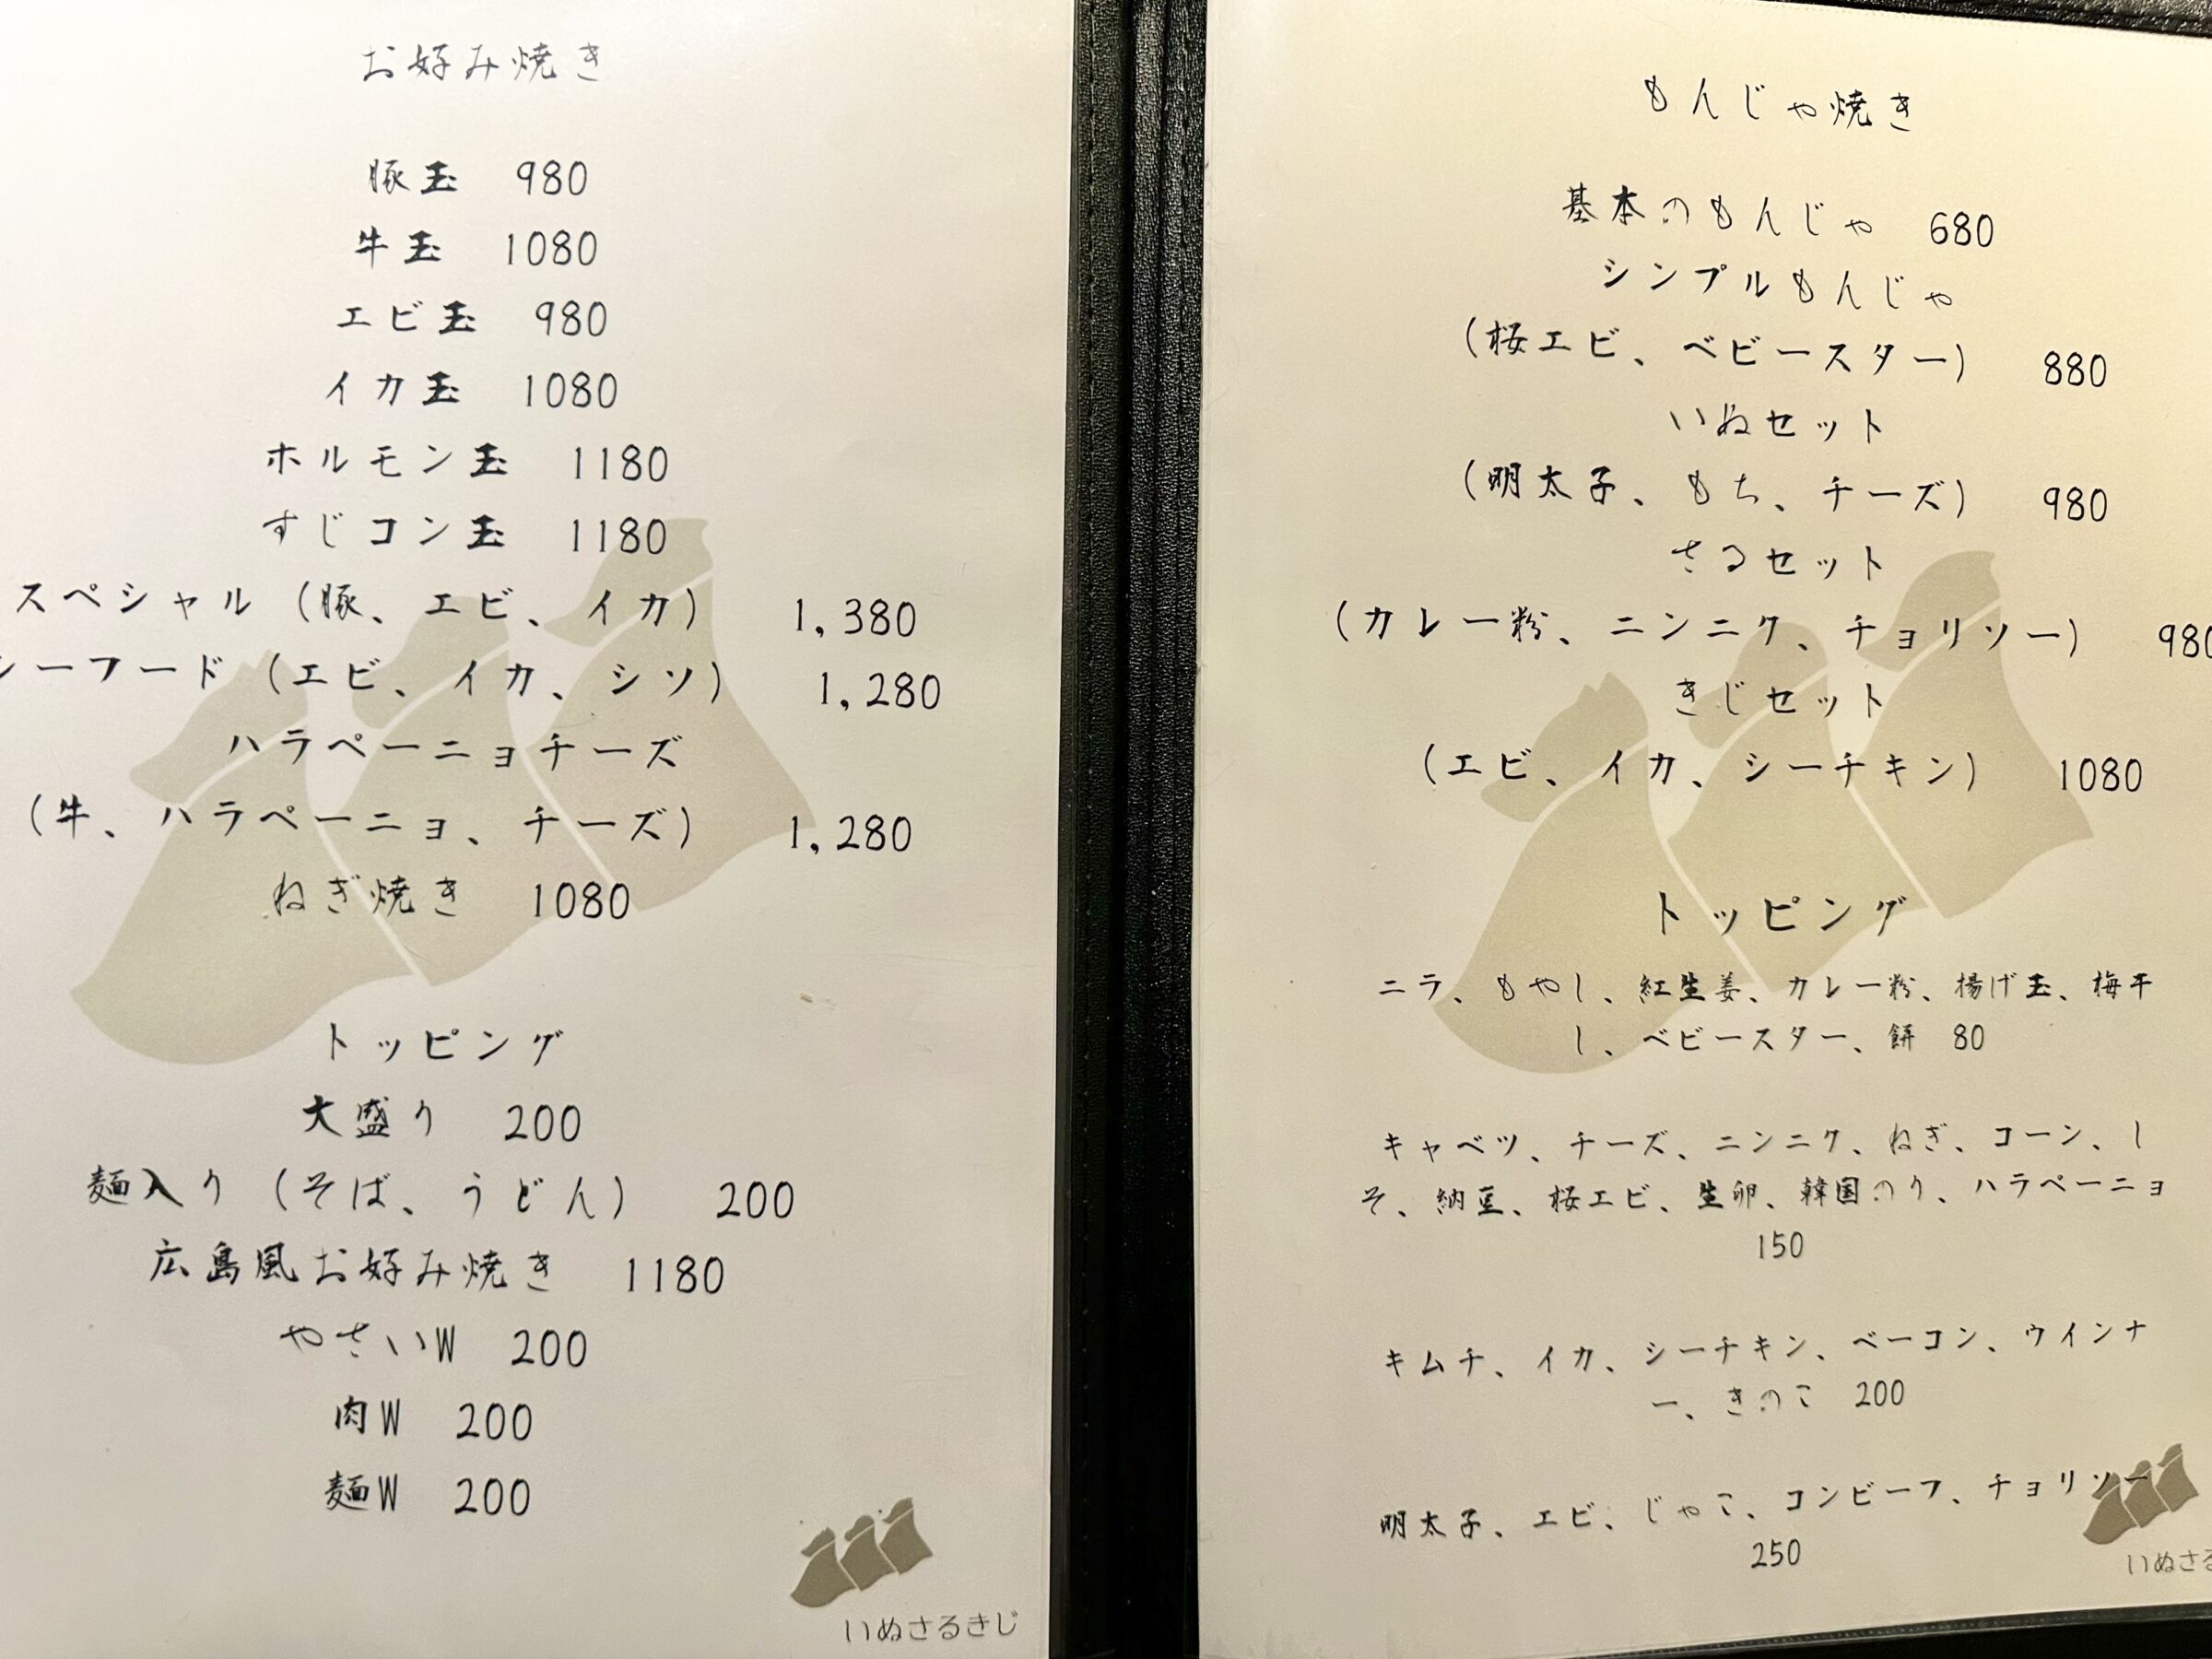 お好み焼き
豚玉 980
牛玉 1080
エビ玉 980
イカ玉 1080
ホルモン玉 1180
すじコン玉 1180
スペシャル（豚、エビ、イカ） 1,380
シーフード（エビ、イカ、シソ） 1,280
ハラペーニョチーズ
（牛、ハラペーニョ、チーズ） 1,280
ねぎ焼き 1080
トッピング
大盛り 200
麺入り（そば、うどん） 200
広島風お好み焼き 1180
やさいW 200
肉W 200
麺W 200
いぬさるきじ
もんじゃ焼き
基本のもんじゃ 680
シンプルもんじゃ
（桜エビ、ベビースター） 880
いぬセット
（明太子、もち、チーズ） 980
さるセット
（カレー粉、ニンニク、チョリソー） 980
きじセット
（エビ、イカ、シーチキン） 1080
トッピング
ニラ、もやし、紅生姜、カレー粉、揚げ玉、梅干
し、ベビースター、餅 80
キャベツ、チーズ、ニンニク、ねぎ、コーン、し
そ、納豆、桜エビ、生卵、韓国のり、ハラペーニョ
150
キムチ、イカ、シーチキン、ベーコン、ウインナ
ー、きのこ 200
明太子、エビ、じゃこ、コンビーフ、チョリソー
250
いぬさる